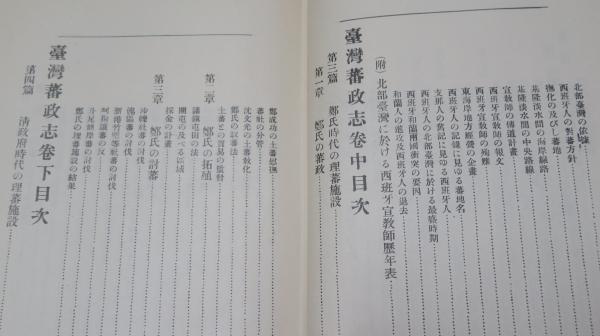 北部臺灣の依據
西班牙人の對蕃方針
撫化の及びし蕃地
基隆淡水間の海岸線路
基隆淡水間の中央路線
宣教師の傳道計畫
西班牙宣教師の報文
西班牙宣教師の殉難
東海岸地方經營の企畫
西班牙人の記錄に見ゆる蕃地名
支那人の舊記に見ゆる西班牙人
西班牙人の北部臺灣に於ける最盛時期
西班牙和蘭兩國衝突の要因
和蘭人の進攻及西班牙人の退去
(附)北部臺灣に於ける西班牙宣教師歷年表
臺灣蕃政志卷中目次
第三篇 鄭氏時代の理蕃施設
第一章 鄭氏の蕃政
鄭成功の土蕃慰撫
蕃社の分管
沈文光の土蕃敎化
鄭氏の征蕃法
土蕃との貿易の監督
第二章 鄭氏の拓殖
鎮屯田の法
開屯の及べる區域
採金の計畫
第三章 鄭氏の討蕃
沙轆社蕃の討伐
傀儡蕃の討伐
新港竹塹等社蕃の討伐
阿拘讀蕃の討伐
斗尾龍岸蕃の討伐
鄭氏の理蕃施設の結果
臺灣蕃政志卷下目次
第四篇 清政府時代の理蕃施設